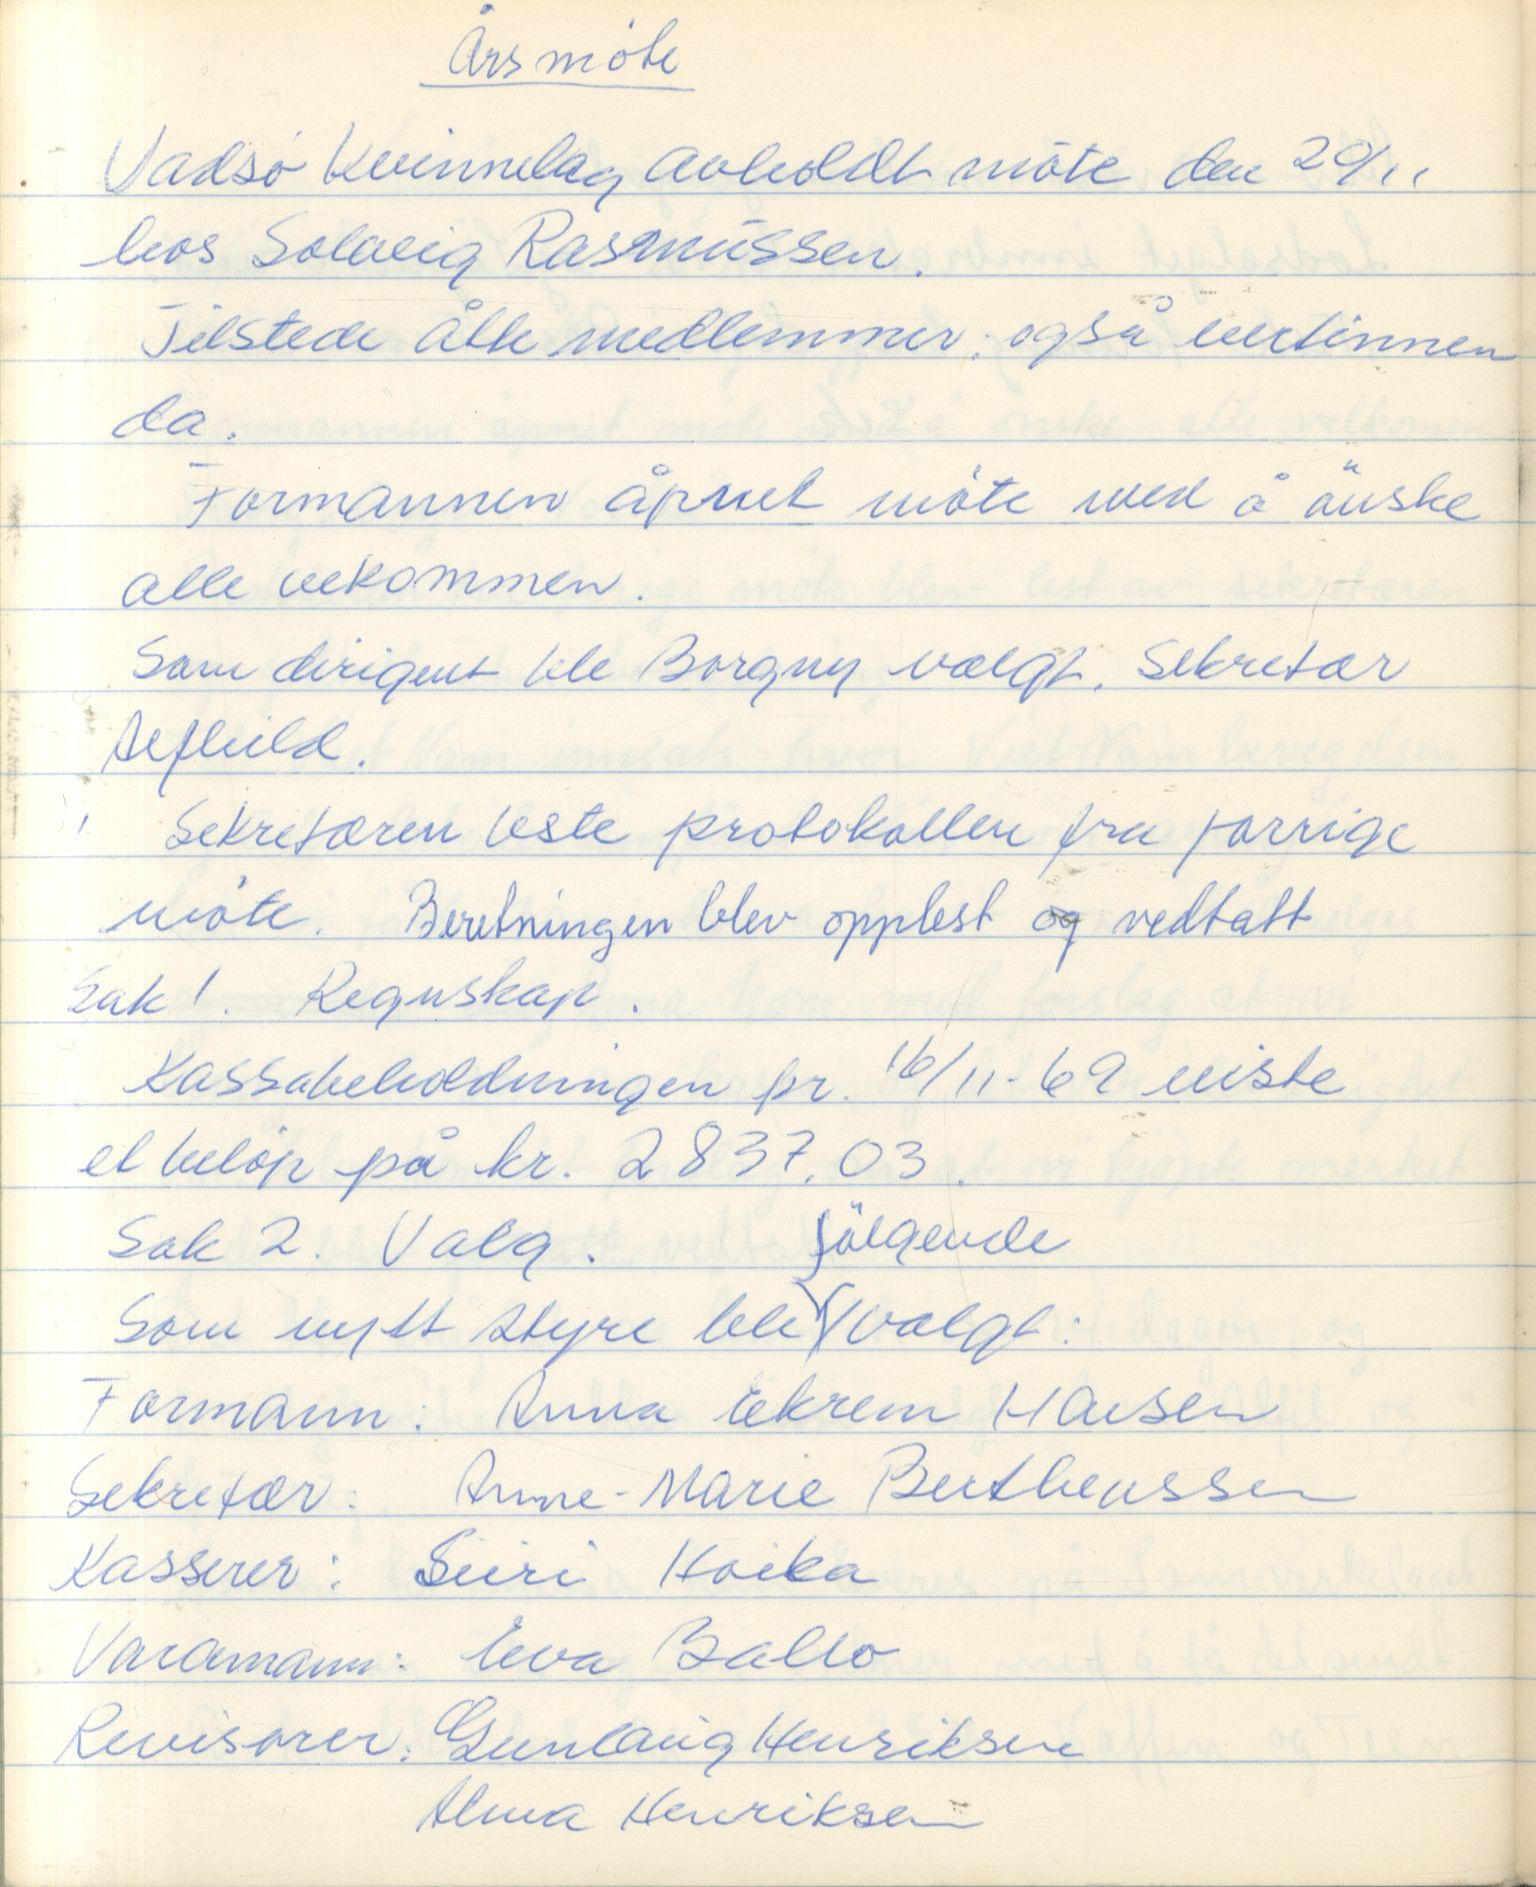 Årsmöte
Vadsö Kvinnelag avholdt möte den 20/11
hos Solveig Rasmussen.
Tilstede alle medlemmer, også vertinnen
da.
Formannen åpnet möte med å önske
alle vekommen.
Som dirigent ble Borgny valgt. Sekretær
Alfhild.
Sekretæren leste protokollen fra forrige
möte. Beretningen blev opplest og vedtatt
Sak 1. Regnskap.
Kassabeholdningen pr. 16/11-69 viste
et belöp på kr. 2837,03.
Sak 2. Valg.
Som nytt styre ble fölgende valgt:
Formann: Anna Ekrem Hansen
Sekretær: Anne-Marie Berthenssen
Kasserer: Siiri Koika
Varamann: Eva Ballo
Revisorer: Gunlaug Henriksen
Alma Henriksen